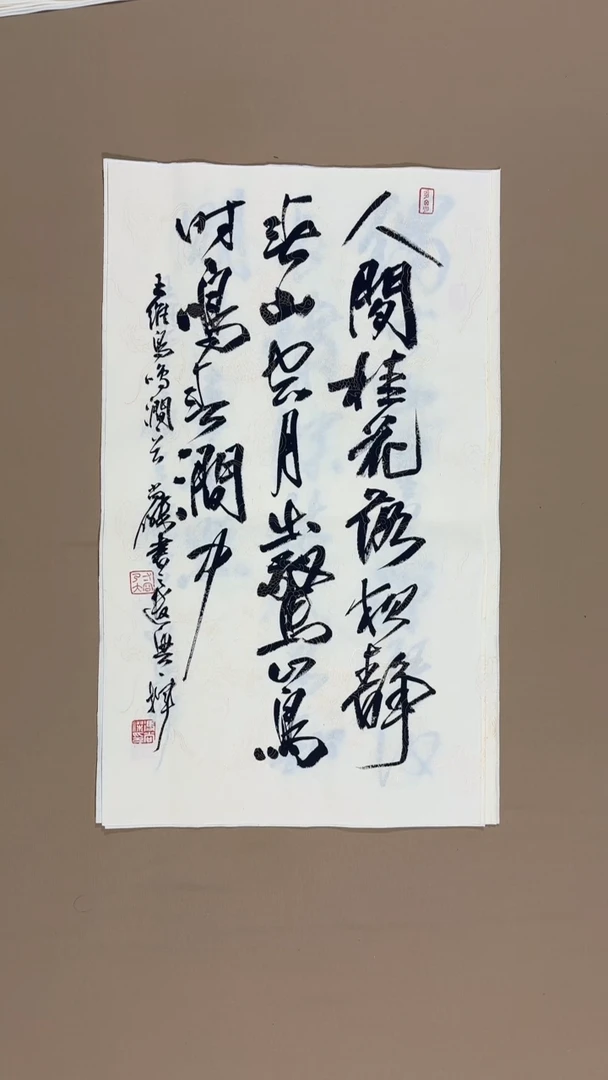 人間桂花落夜靜
春山空月出驚山鳥
时鳴春澗中
王維鳥鳴澗 書之